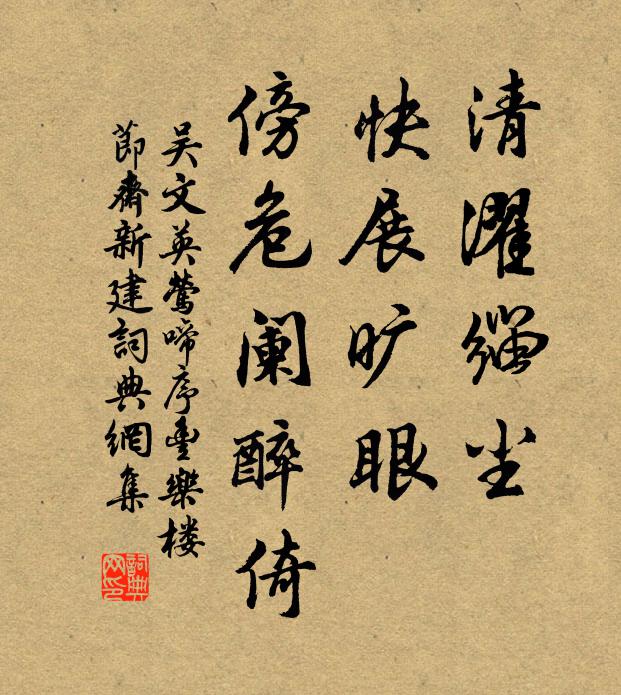 清濯缁尘
快展旷眼
傍危阑醉倚
吴文英莺啼序丰樂楼
節齋新建詞典網集
詞典网印